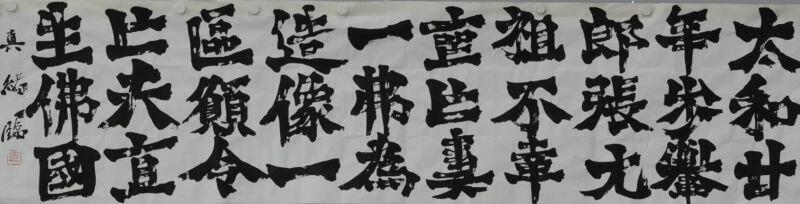 太和廿
年步轝
郎張元
祖不幸
喪亡妻
一弗為
造像一
區願令
亡夫直
生佛國
真 臨